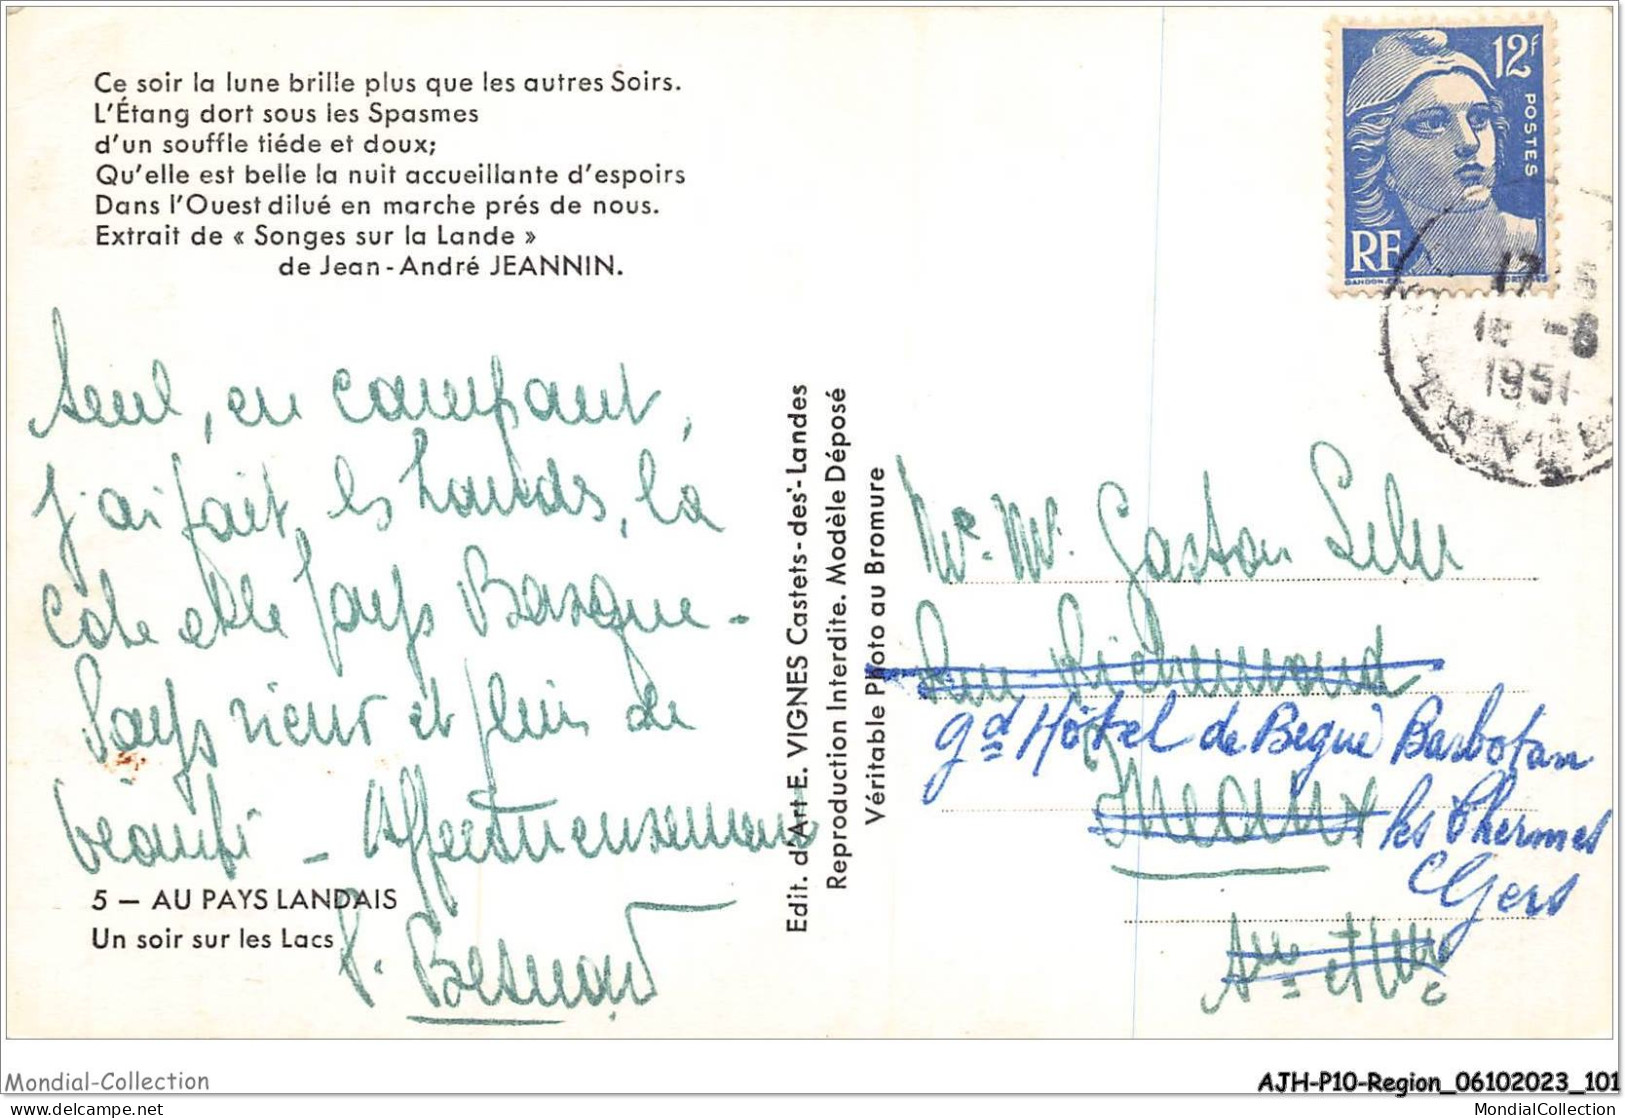 Ce soir la lune brille plus que les autres Soirs.
L'Étang dort sous les Spasmes
d'un souffle tiéde et doux;
Qu'elle est belle la nuit accueillante d'espoirs
Dans l'Ouest dilué en marche prés de nous.
Extrait de « Songes sur la Lande »
de Jean-André JEANNIN.
Seul, en campant,
j'ai fait, les Landes, la
Côte et le Pays Basque -
Pays rieur et plein de
beauté - Affectueusement
5 — AU PAYS LANDAIS
Un soir sur les Lacs
P. Besnard
Edit. d'Art E. VIGNES Castets-des-Landes
Reproduction Interdite. Modèle Déposé
Véritable Photo au Bromure
12f
POSTES
RF
GANDON
17
-8
1951
Gaston
Rue Richemond
gd Hôtel de Begué Barbotan
Meaux les Thermes
Gers
Mondial-Collection
AJH-P10-Region_06102023_101
MIH Collection
MondialCollection